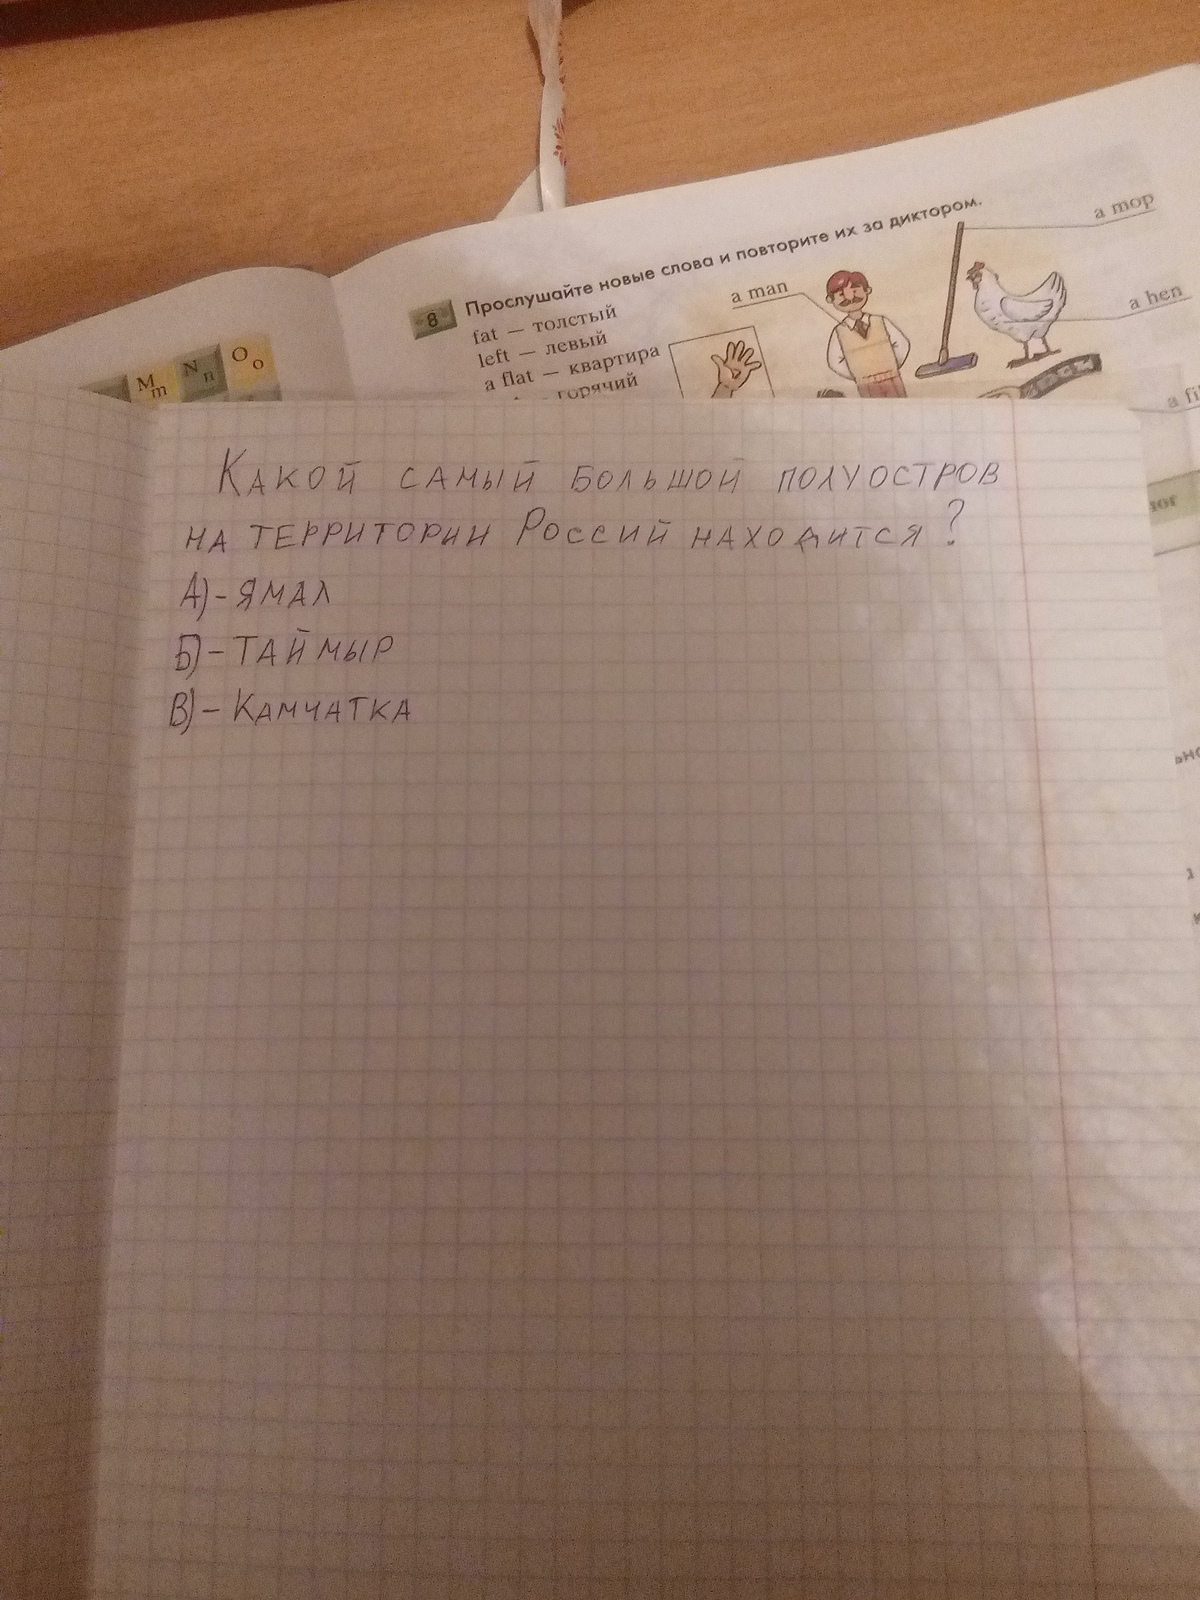 a mop
8 Прослушайте новые слова и повторите их за диктором.
a man
a hen
fat — толстый
left — левый
a flat — квартира
горячий
M m N n O o
Какой самый большой полуостров
на территории Россий находится?
А)- Ямал
Б)- Таймыр
В)- Камчатка